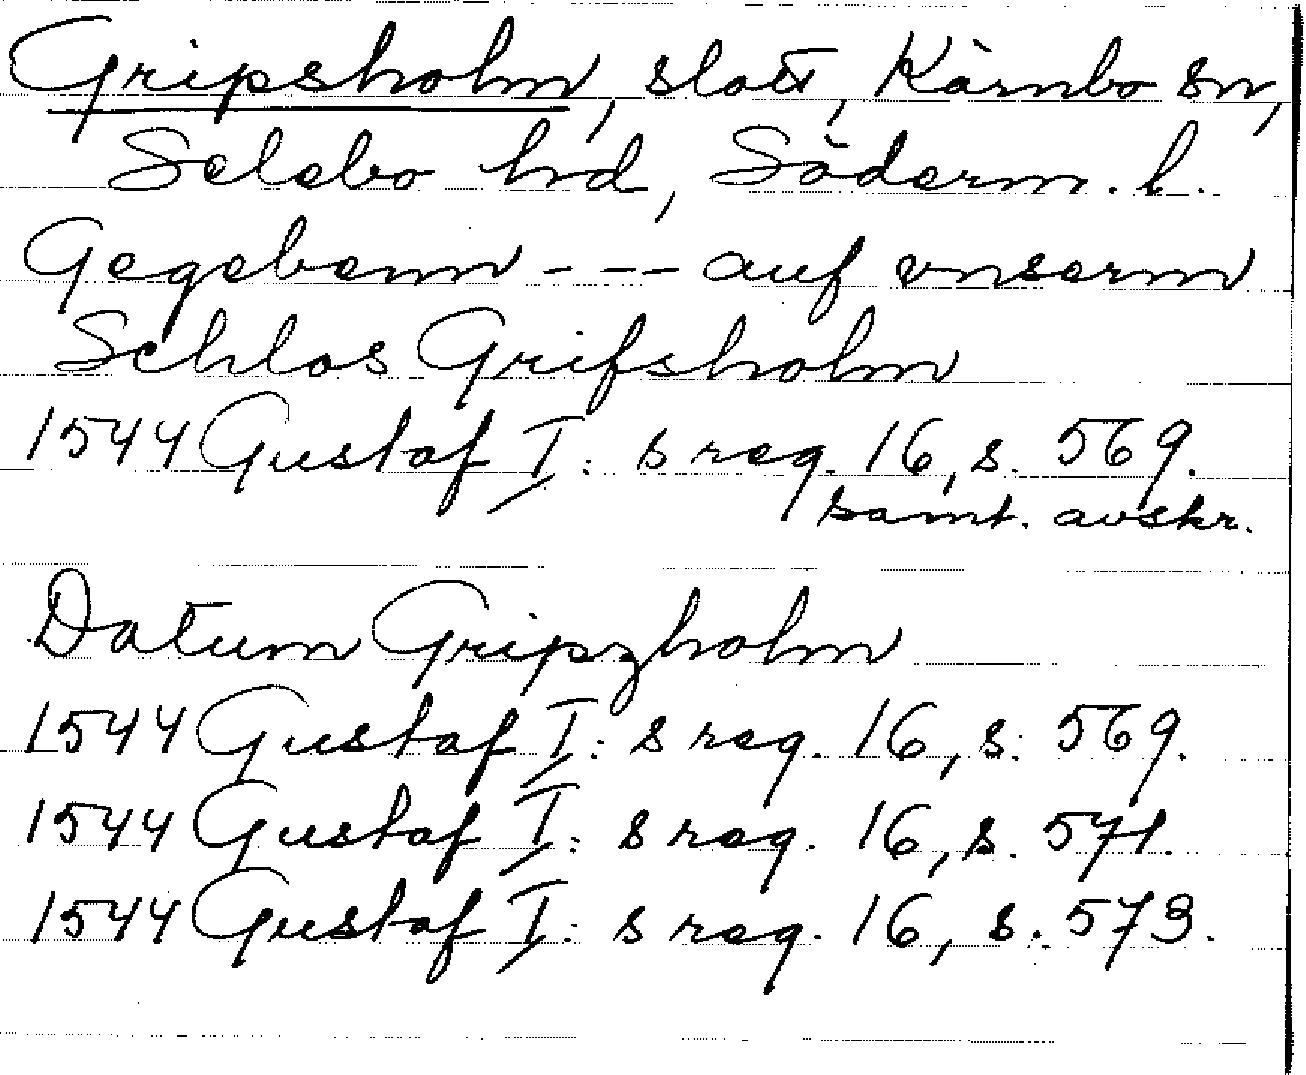 Gripsholm, slott, Kärnbo sn,
Selebo hd, Söderm. l.
Gegebenn --- auf vnserm
Schlos Grifsholm
1544 Gustaf I: s reg. 16, s. 569.
samt. avskr.
Datum Gripzholm
1544 Gustaf I: s reg. 16, s. 569.
1544 Gustaf I: s reg. 16, s. 571.
1544 Gustaf I: s reg. 16, s. 573.